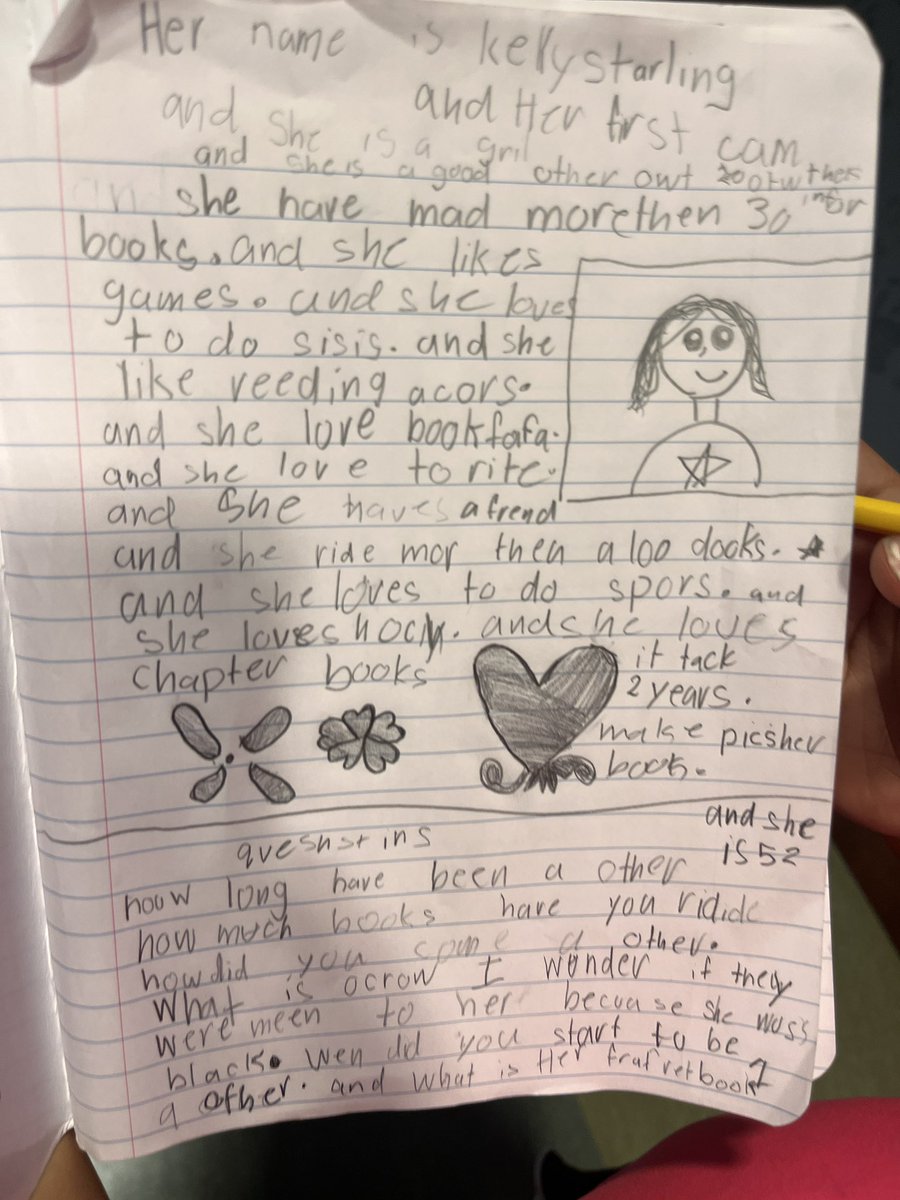 Her name is kelly starling
and Her first cam
and She is a gril
and she is a good other owt 200
she have mad morethen 30 infor
books. and she likes
games. and she loves
to do sisis. and she
like reeding acors.
and she love bookfafa.
and she love to rite.
and She haves a frend
and she ride mor then a 100 dooks.
and she loves to do spors. and
she loves hocy. and she loves
chapter books
it tack
2 years.
make picsher
book.
and she
is 52
queshstins
houw long have been a other
how much books have you ridide
how did you come a other.
What is ocrow I wonder if they
were meen to her becuase she wass
black. wen did you start to be
a other. and what is Her book?